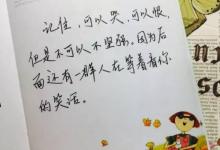 记住，可以哭，可以恨，
但是不可以不坚强。因为后
面还有一群人在等着看你
的笑话。